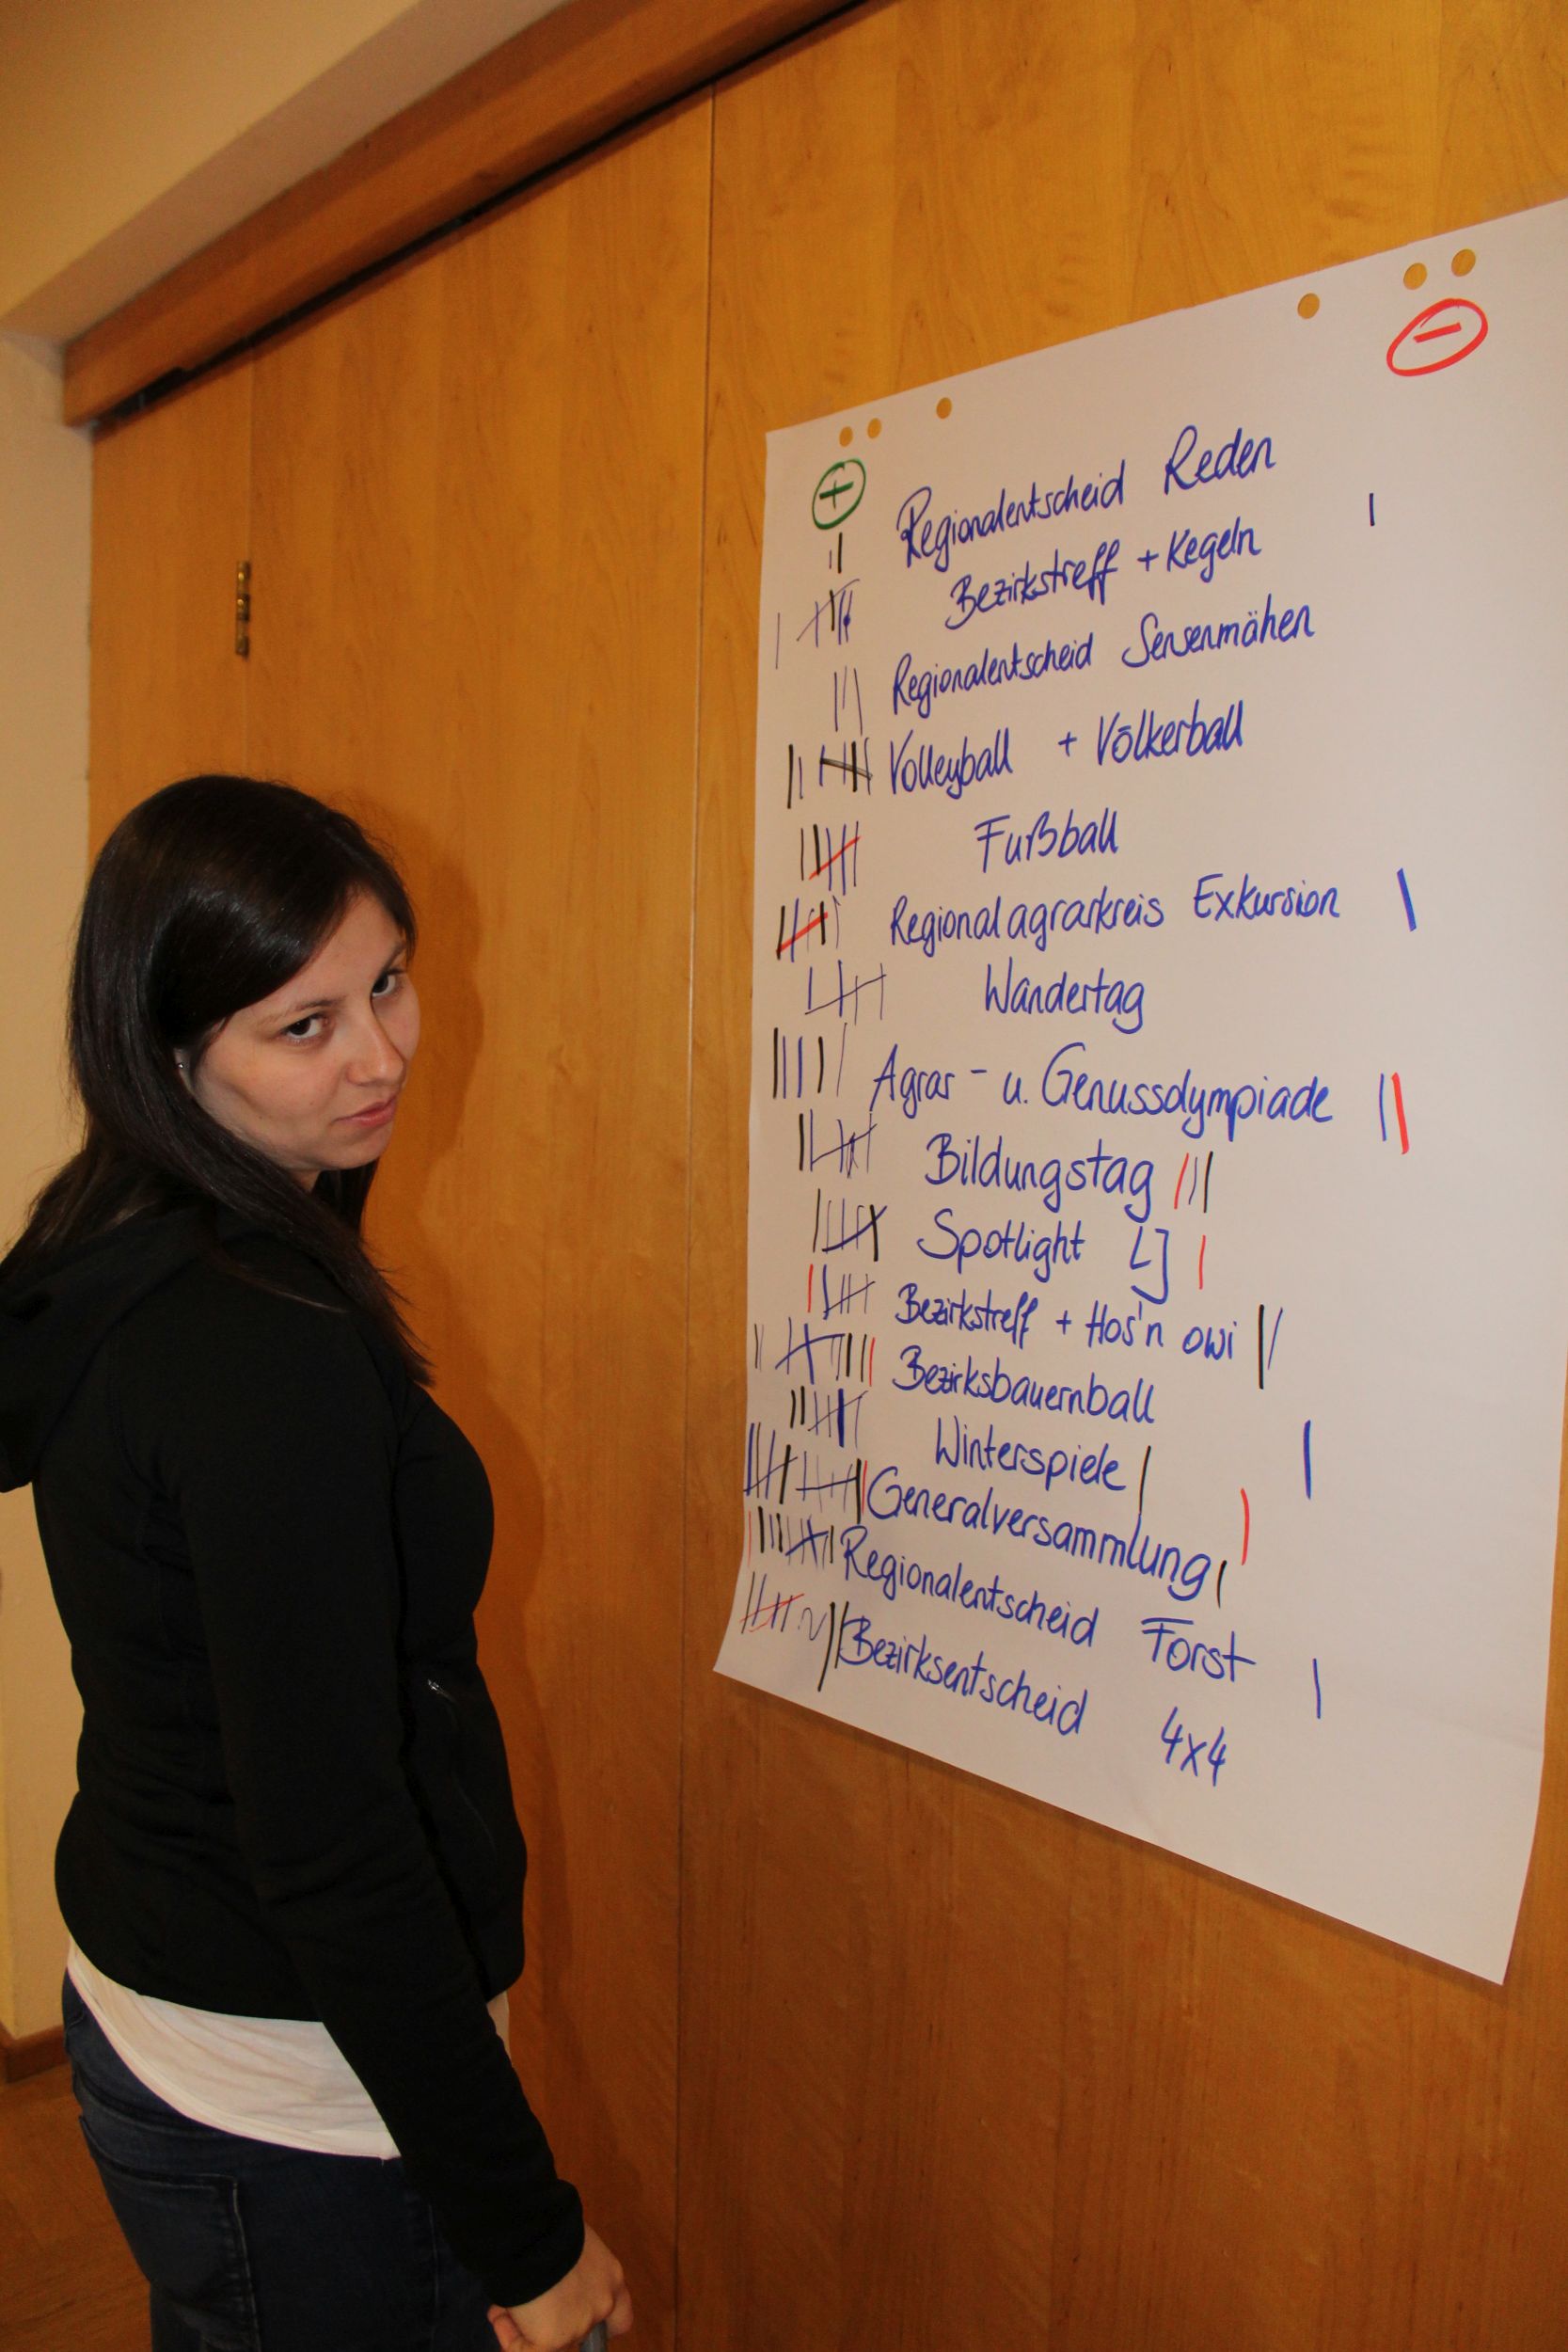 +
−
Regionalentscheid Reden
Bezirkstreff + Kegeln
Regionalentscheid Sensenmähen
Volleyball + Völkerball
Fußball
Regionalagrarkreis Exkursion
Wandertag
Agrar- u. Genussolympiade
Bildungstag
Spotlight LJ
Bezirkstreff + Hos'n owi
Bezirksbauernball
Winterspiele
Generalversammlung
Regionalentscheid Forst
Bezirksentscheid 4x4